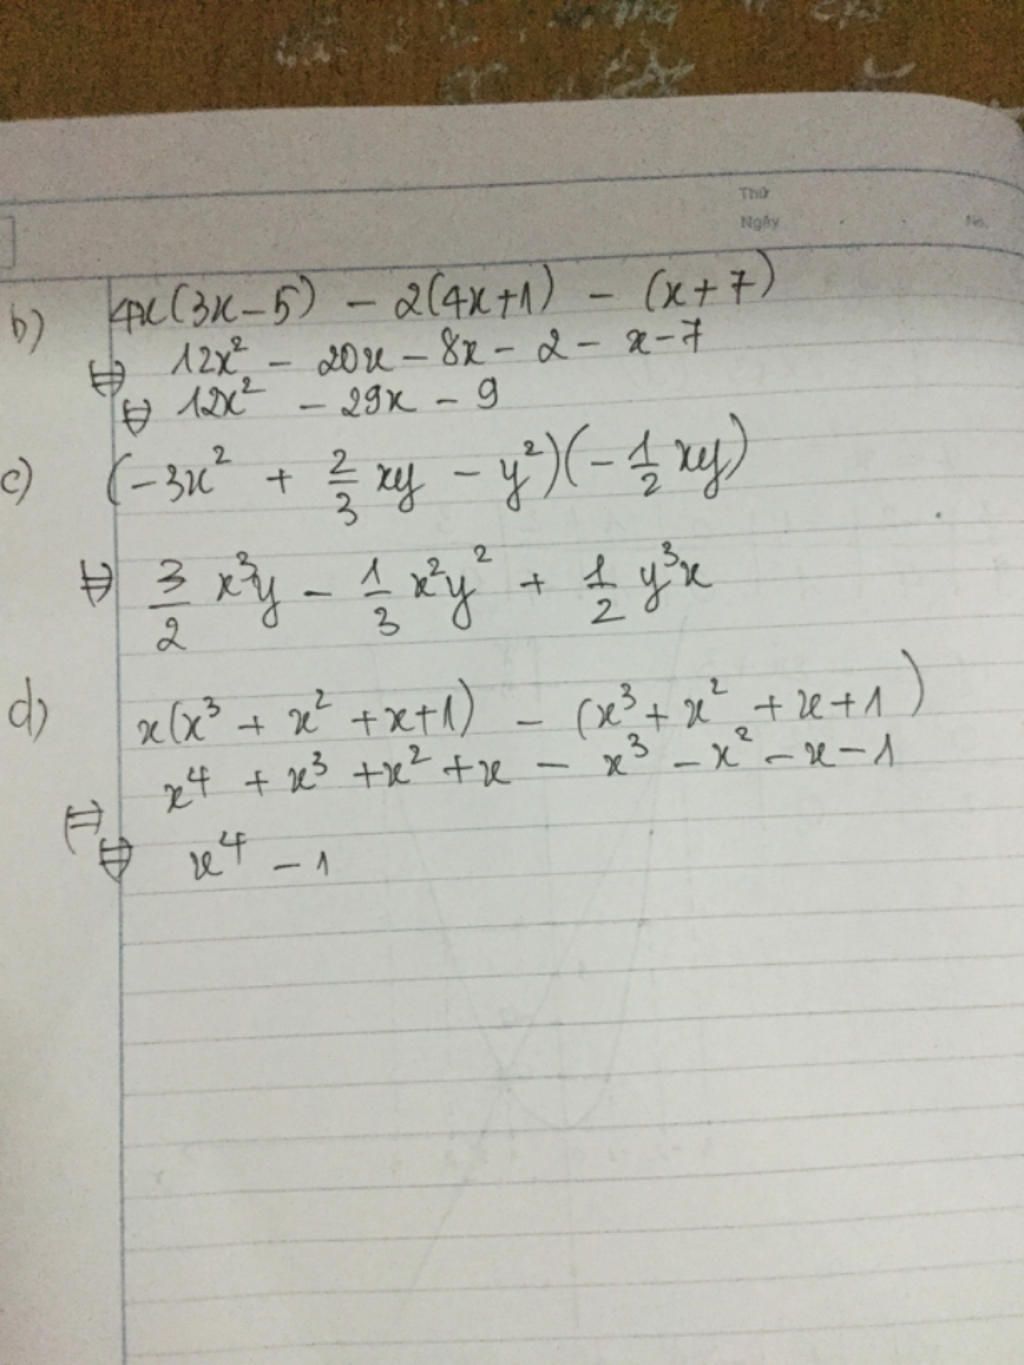 Thứ
Ngày
No.
b) 4x(3x-5) - 2(4x+1) - (x+7)
⇔ 12x² - 20x - 8x - 2 - x - 7
⇔ 12x² - 29x - 9
c) (-3x² + 2/3 xy - y²)(-1/2 xy)
⇔ 3/2 x³y - 1/3 x²y² + 1/2 y³x
d) x(x³ + x² + x + 1) - (x³ + x² + x + 1)
⇔ x⁴ + x³ + x² + x - x³ - x² - x - 1
⇔ x⁴ - 1